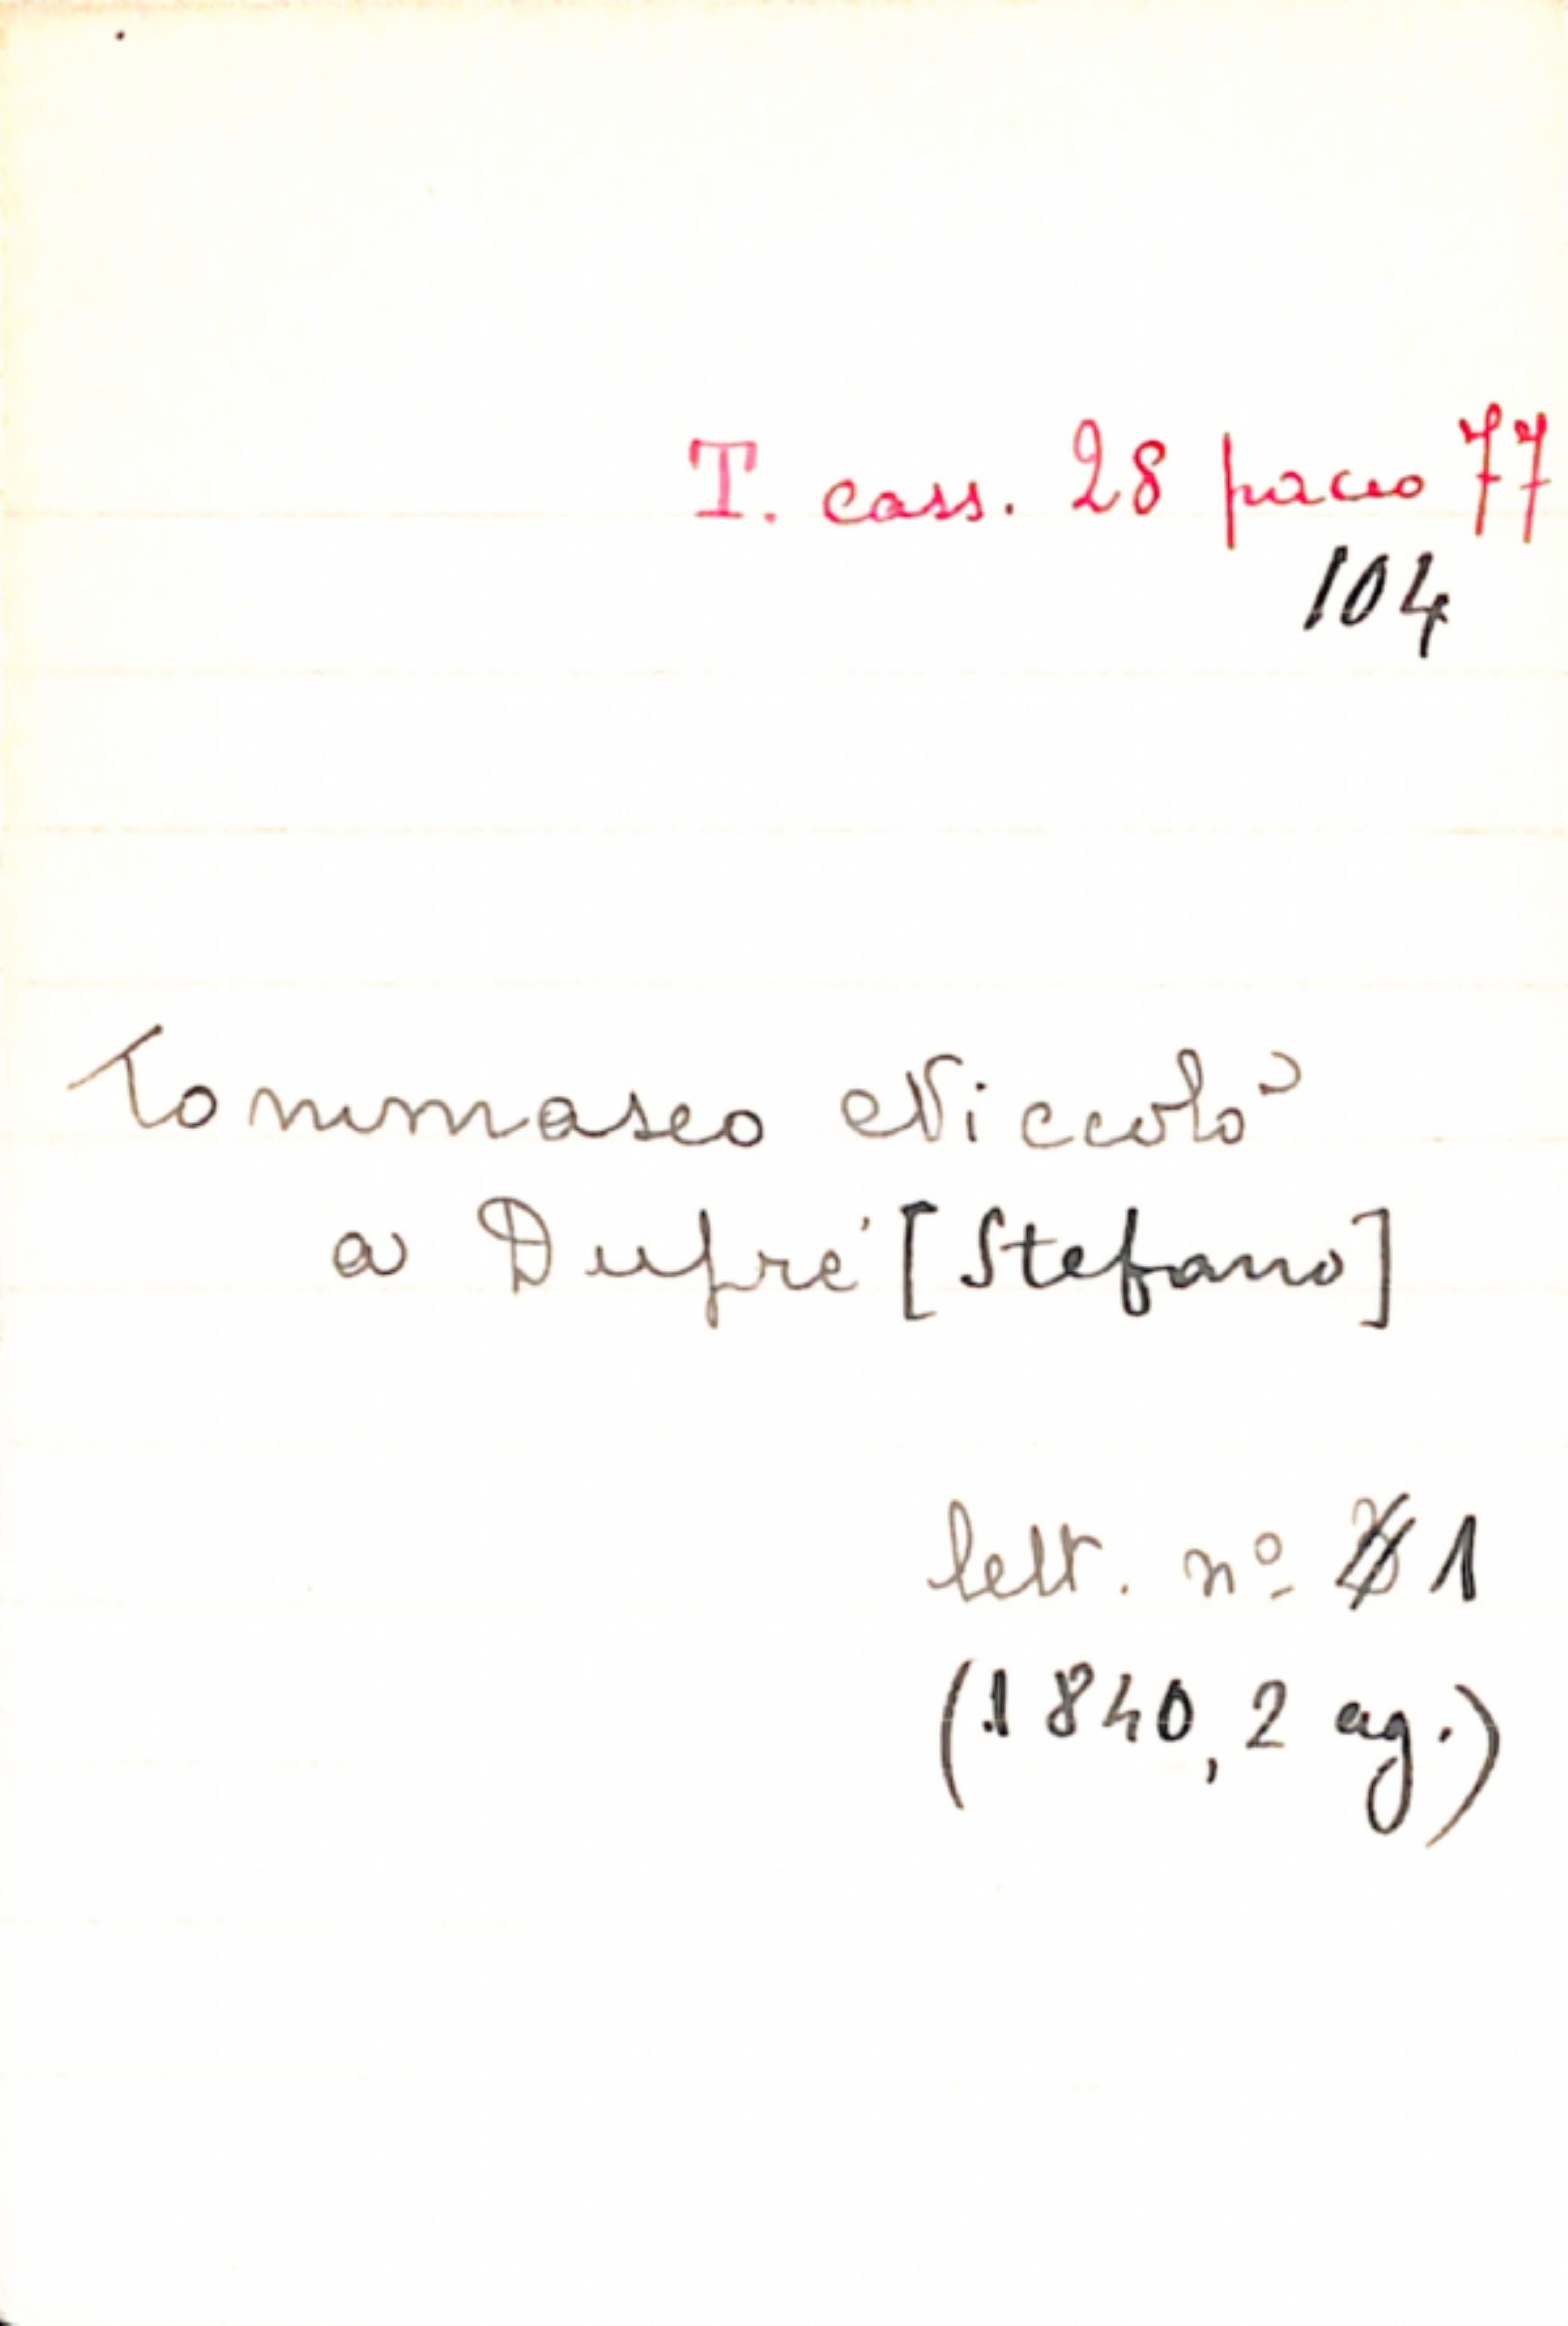 T. cass. 28 pacco 77
104
Tommaseo Niccolò
a Dupré [Stefano]
lett. nº 1
(1840, 2 ag.)